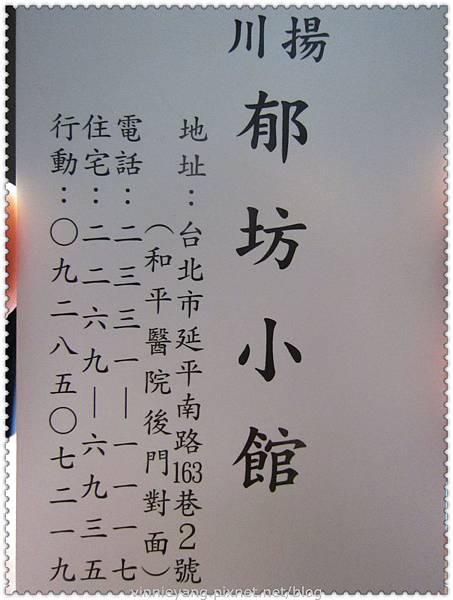 揚川
郁坊小館
地址：台北市延平南路163巷2號
（和平醫院後門對面）
電話：二三三一—一一一七
住宅：二二六九—六九三五
行動：〇九二八五〇七二一九
xinnieyang.pixnet.net/blog